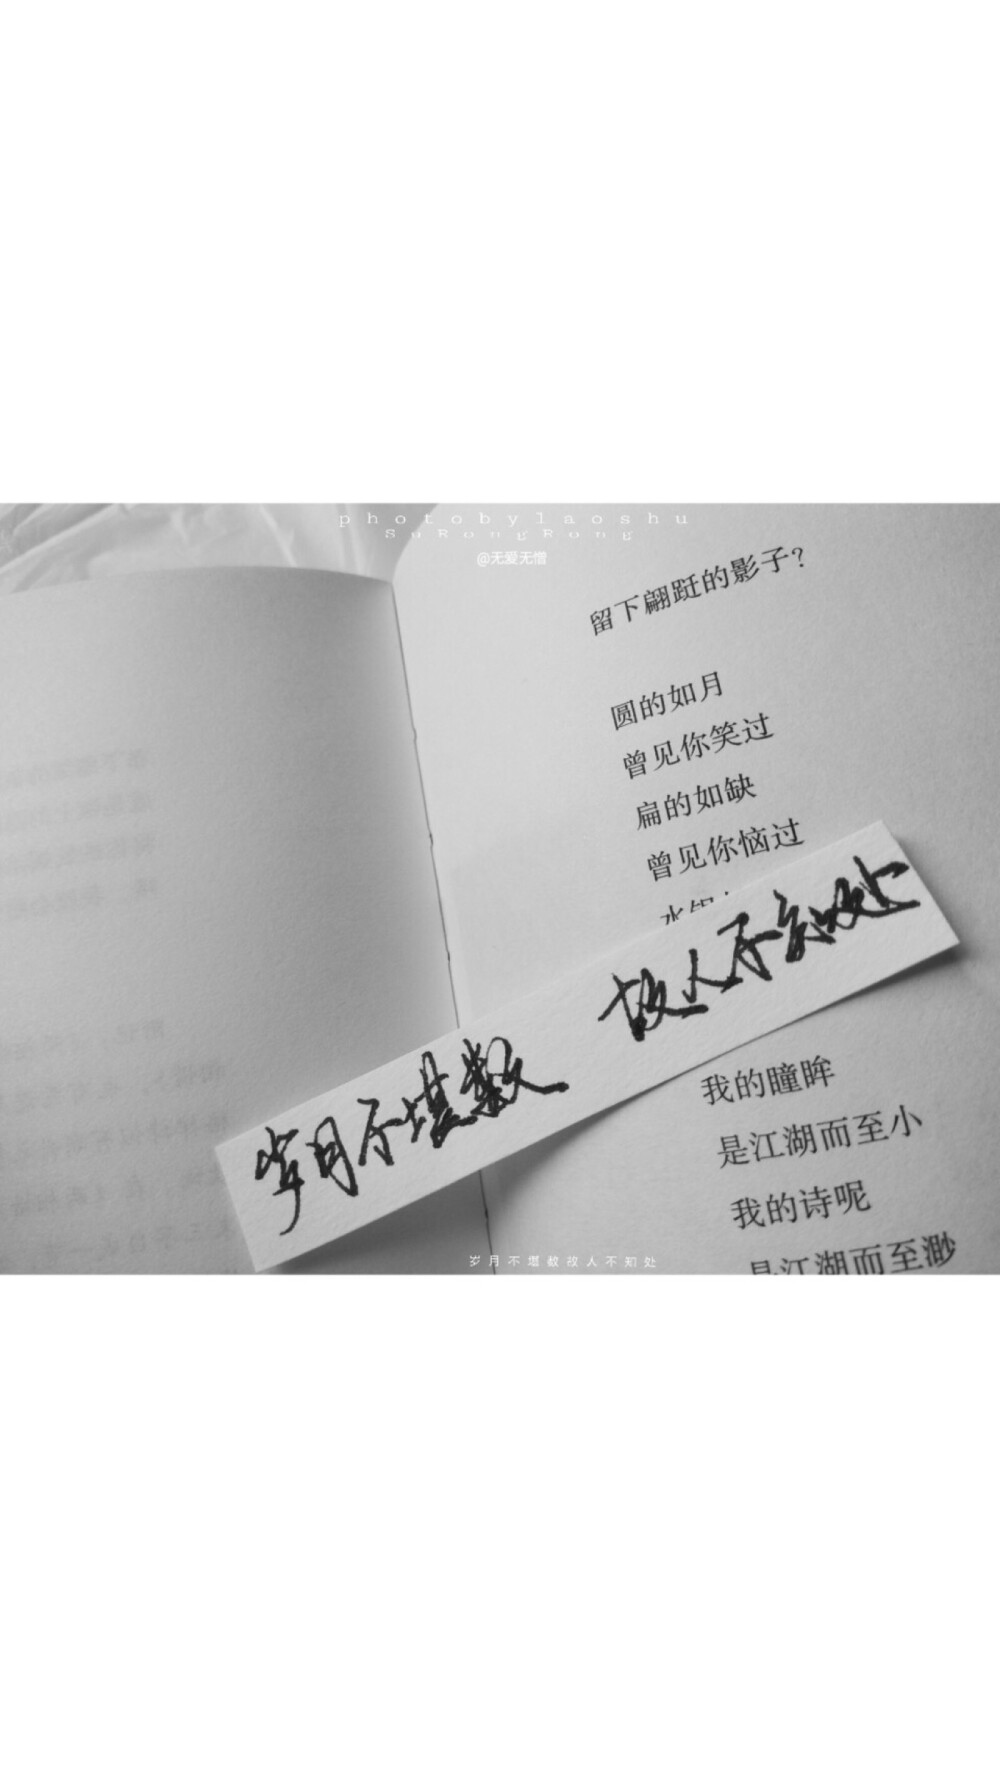 photobylaoshu
SuRongRong
@无爱无憎
留下翩跹的影子？
圆的如月
曾见你笑过
扁的如缺
曾见你恼过
岁月不堪数 故人不知处
我的瞳眸
是江湖而至小
我的诗呢
是江湖而至渺
岁月不堪数故人不知处